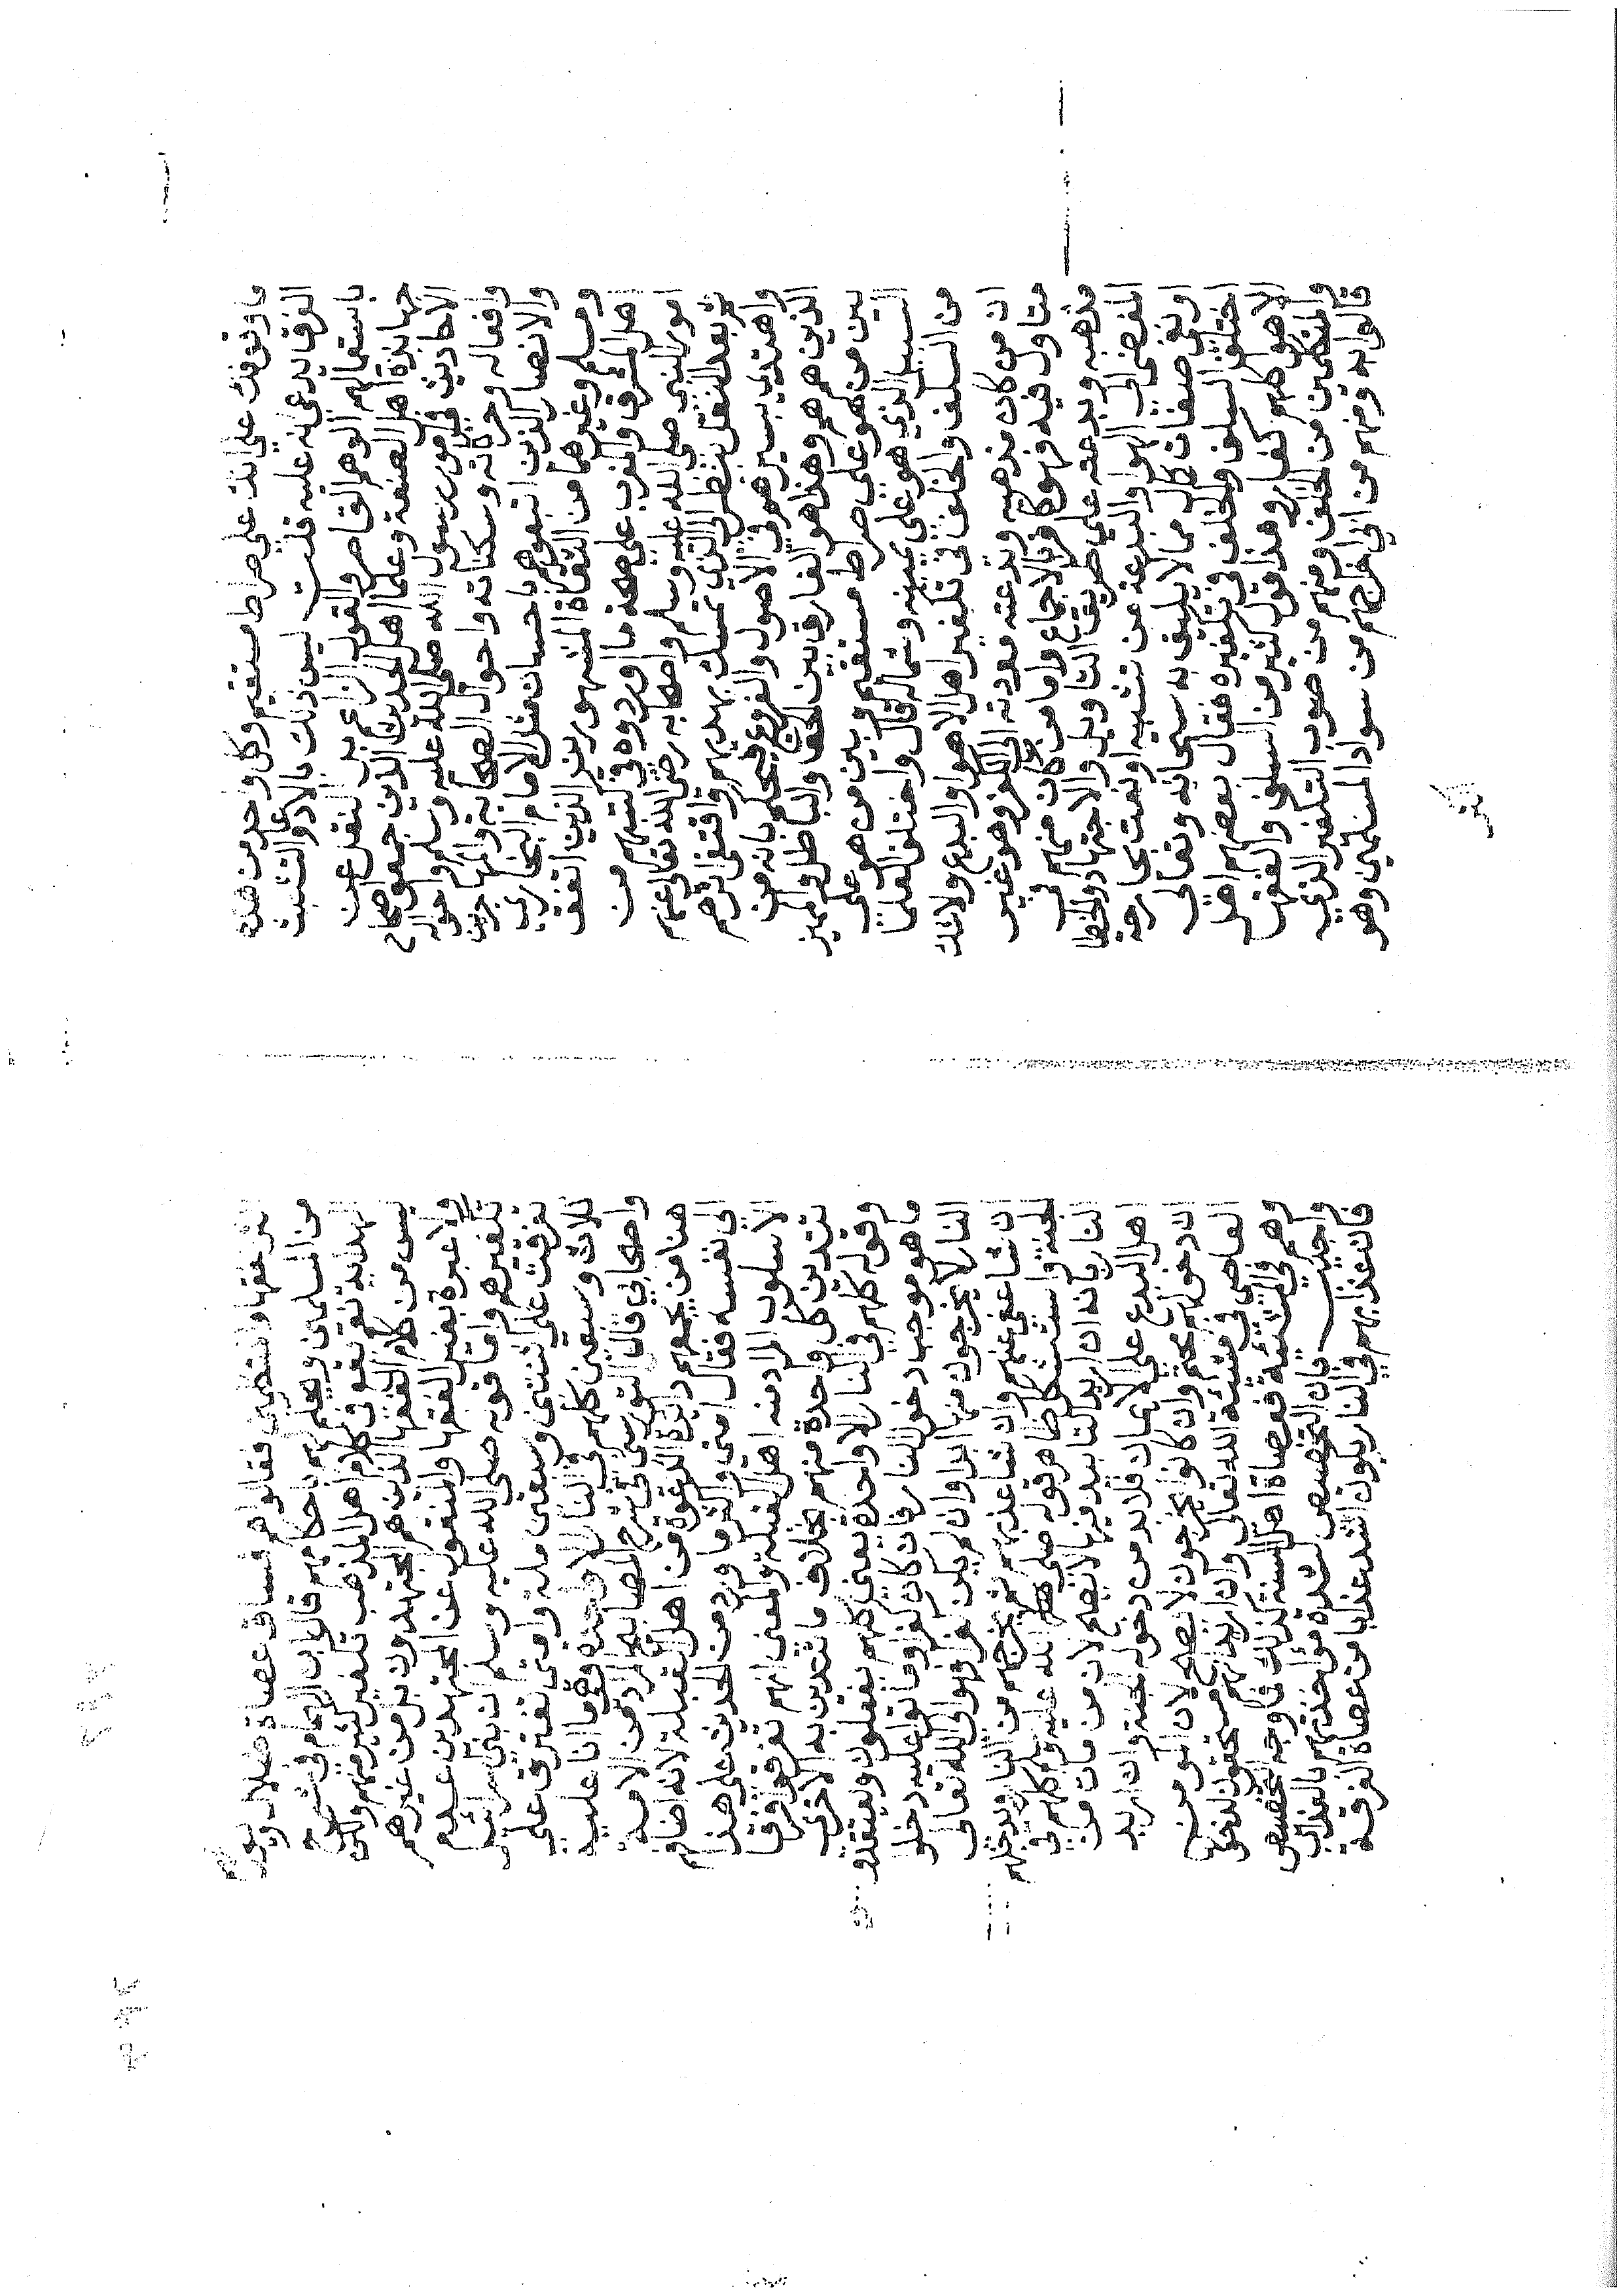 ما وثوقك علي انك علي صراط مستقيم وكل واحد من هذه
الفرق يدعي انه عليه قلت ليس ذلك بالادعا والتشبث
باستعمالهم الوهم القاصر والقول الزاعم بل النقل عن
جهابذة اهل الصنعة وعلما اهل الحديث الذين جمعوا صحاح
الاحاديث في امور رسول الله صلى الله عليه وسلم واحواله
وافعاله وحركاته وسكناته واحوال الصحابة والمهاجرين
والانصار الذين اتبعوهم باحسان مثل الامام البخاري
ومسلم وغيرهما من الثقاة المشهورين الذين اتفق
اهل المشرق والمغرب علي صحة ما اوردوه في كتبهم من
امور النبي صلى الله عليه وسلم واصحابه رضي الله تعالى عنهم
ثم بعد النقل ينظر الى الذي تمسك بهديهم واقتفى اثرهم
واهتدى بسيرهم في الاصول والفروع فيحكم بانه من
الذين هم هم وهذا هو الفارق بين الحق والباطل والمميز
بين من هو على صراط مستقيم وبين من هو على
السبيل الذي هو علي يمينه وشماله قال واختلف العلما
من السلف والخلف في تكفير اهل الاهوا والبدع ولا شك
ان من كان مذهبه وبدعته مودية الى الكفر وهو غير
متاول فيه فهو كافر بالاجماع واما من كان منهم في
مذهبه وبدعته علي طريق التاويل والاجتهاد والخطا
المفضي الى الهوا والبدعة من تشبيه او نعت بجارحة
او نفي صفات كمال مما لا يليق به سبحانه وتعالى
اختلف السلف والخلف في تكفيره فقال بعضهم اهل
الاهوا كلهم كفار وهذا قول كثير من السلف والفقها
والمتكلمين من الخلف ومنهم من صوب التكفير الذي
قالوا به ومنهم من ابي اخراجهم من سواد المسلمين وهو
اكثر الفقها والمتكلمين فقالوا هم فساق عصاة ضلال
من المسلمين ويحكم لهم باحكامهم قال ابن الهمام في شرح
الهداية نعم يقع في كلام اهل المذهب تكفير كثير منهم ولكن
ليس من كلام الفقها الذين هم المجتهدون بل من غيرهم
ولا عبرة بغير الفقها والمنقول عن المجتهدين عدم
تكفيرهم واما قوله صلى الله عليه وسلم ان بني اسرائيل
تفرقت علي اثنتين وسبعين ملة وامتي تفترق علي
ثلاث وسبعين كلهم في النار الا واحدة وهو ما انا عليه
واصحابي قال التوربشتي في شرح المصابيح المراد من الامة
هنا من يجمعهم دايرة الدعوة من اهل القبلة لانه اضافهم
الى نفسه فقال امتي واكثر ما ورد من الحديث علي هذا
الاسلوب المراد منه اهل القبلة والمعنى انهم تفرقوا فرقا
تتدين كل واحدة منهم بخلاف ما تتدين به الاخرى
وقوله كلهم في النار الا واحدة يعني كلهم يفعلون ويعتقدون
ما هو موجب دخول النار فان كان كفرا وماتوا عليه دخلوا
النار لا يخرجون منها ابدا وان لم يكن كفرا فهو الى الله تعالى
ان شا عفى عنهم وان شا عذبهم ثم يخرجهم من النار ويدخلهم
الجنة واستشكل ظاهر قوله صلى الله عليه وسلم كلهم في
النار بانه ان اريد التابيد فيها لا يصح لان من مات من
اهل البدع علي الايمان فلا بد من دخوله الجنة وان اريد
ان دخولهم محتم وان كانوا يخرجون لا يصح لان المومن
العاصي في مشيئة الله تعالى وان اريد انهم مستحقون لدخولها
وهم في المشيئة فعصاة اهل السنة كذلك فما وجه التخصيص
واجيب بان التخصيص لشدة مواخذتهم بالعذاب
فان عذابهم في النار يكون اشد عذابا من عصاة الفرقة